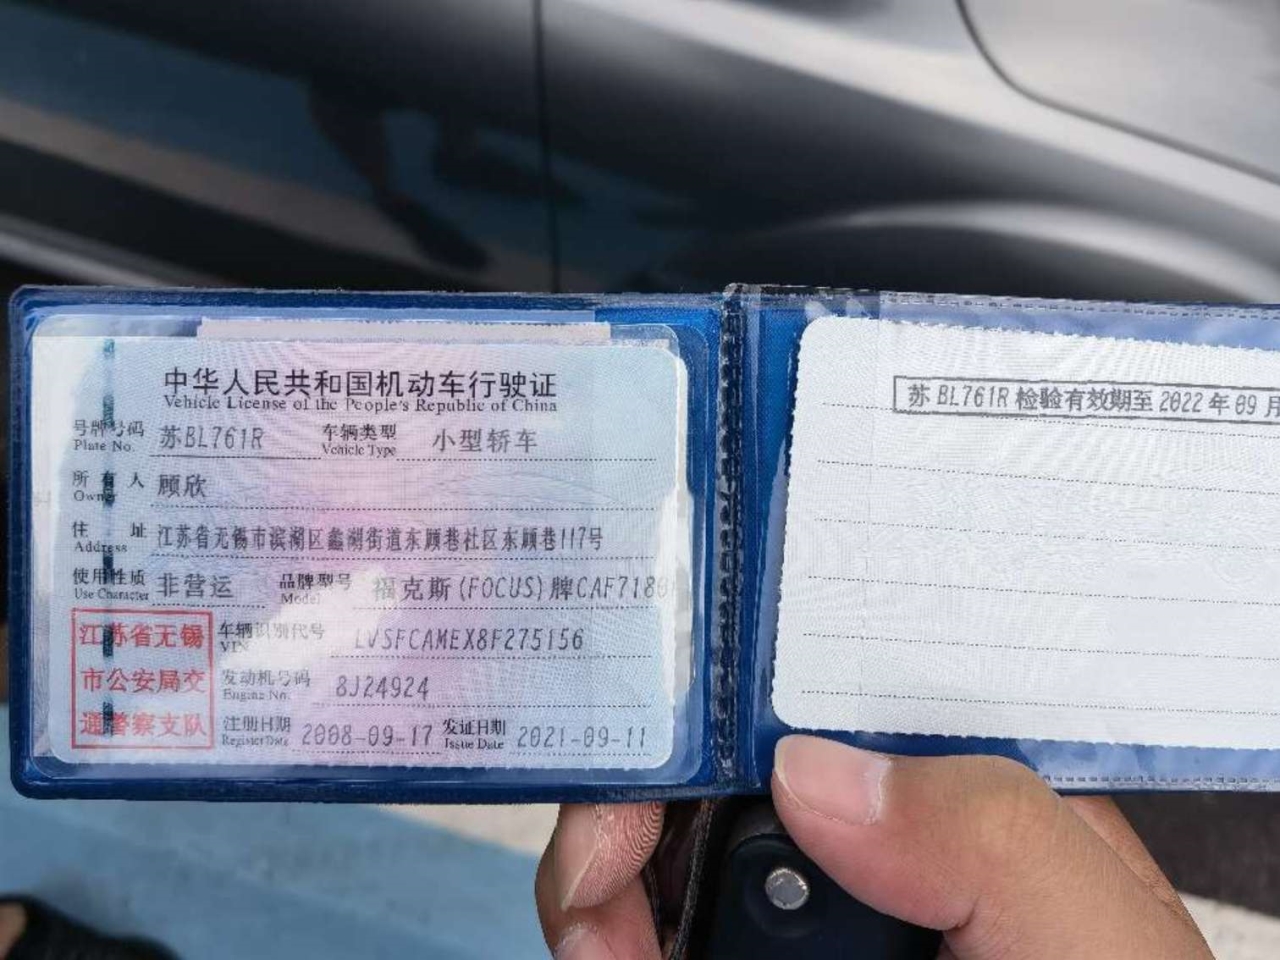 中华人民共和国机动车行驶证
Vehicle License of the People's Republic of China
号牌号码 苏BL761R 车辆类型 小型轿车
Plate No. Vehicle Type
所有人 顾欣
Owner
住址 江苏省无锡市滨湖区蠡湖街道东顾巷社区东顾巷117号
Address
使用性质 非营运 品牌型号 福克斯(FOCUS)牌CAF7180
Use Character Model
江苏省无锡
市公安局交
通警察支队
车辆识别代号 LVSFCAMEX8F275156
VIN
发动机号码 8J24924
Engine No.
注册日期 2008-09-17 发证日期 2021-09-11
Register Date Issue Date
苏BL761R检验有效期至2022年09月